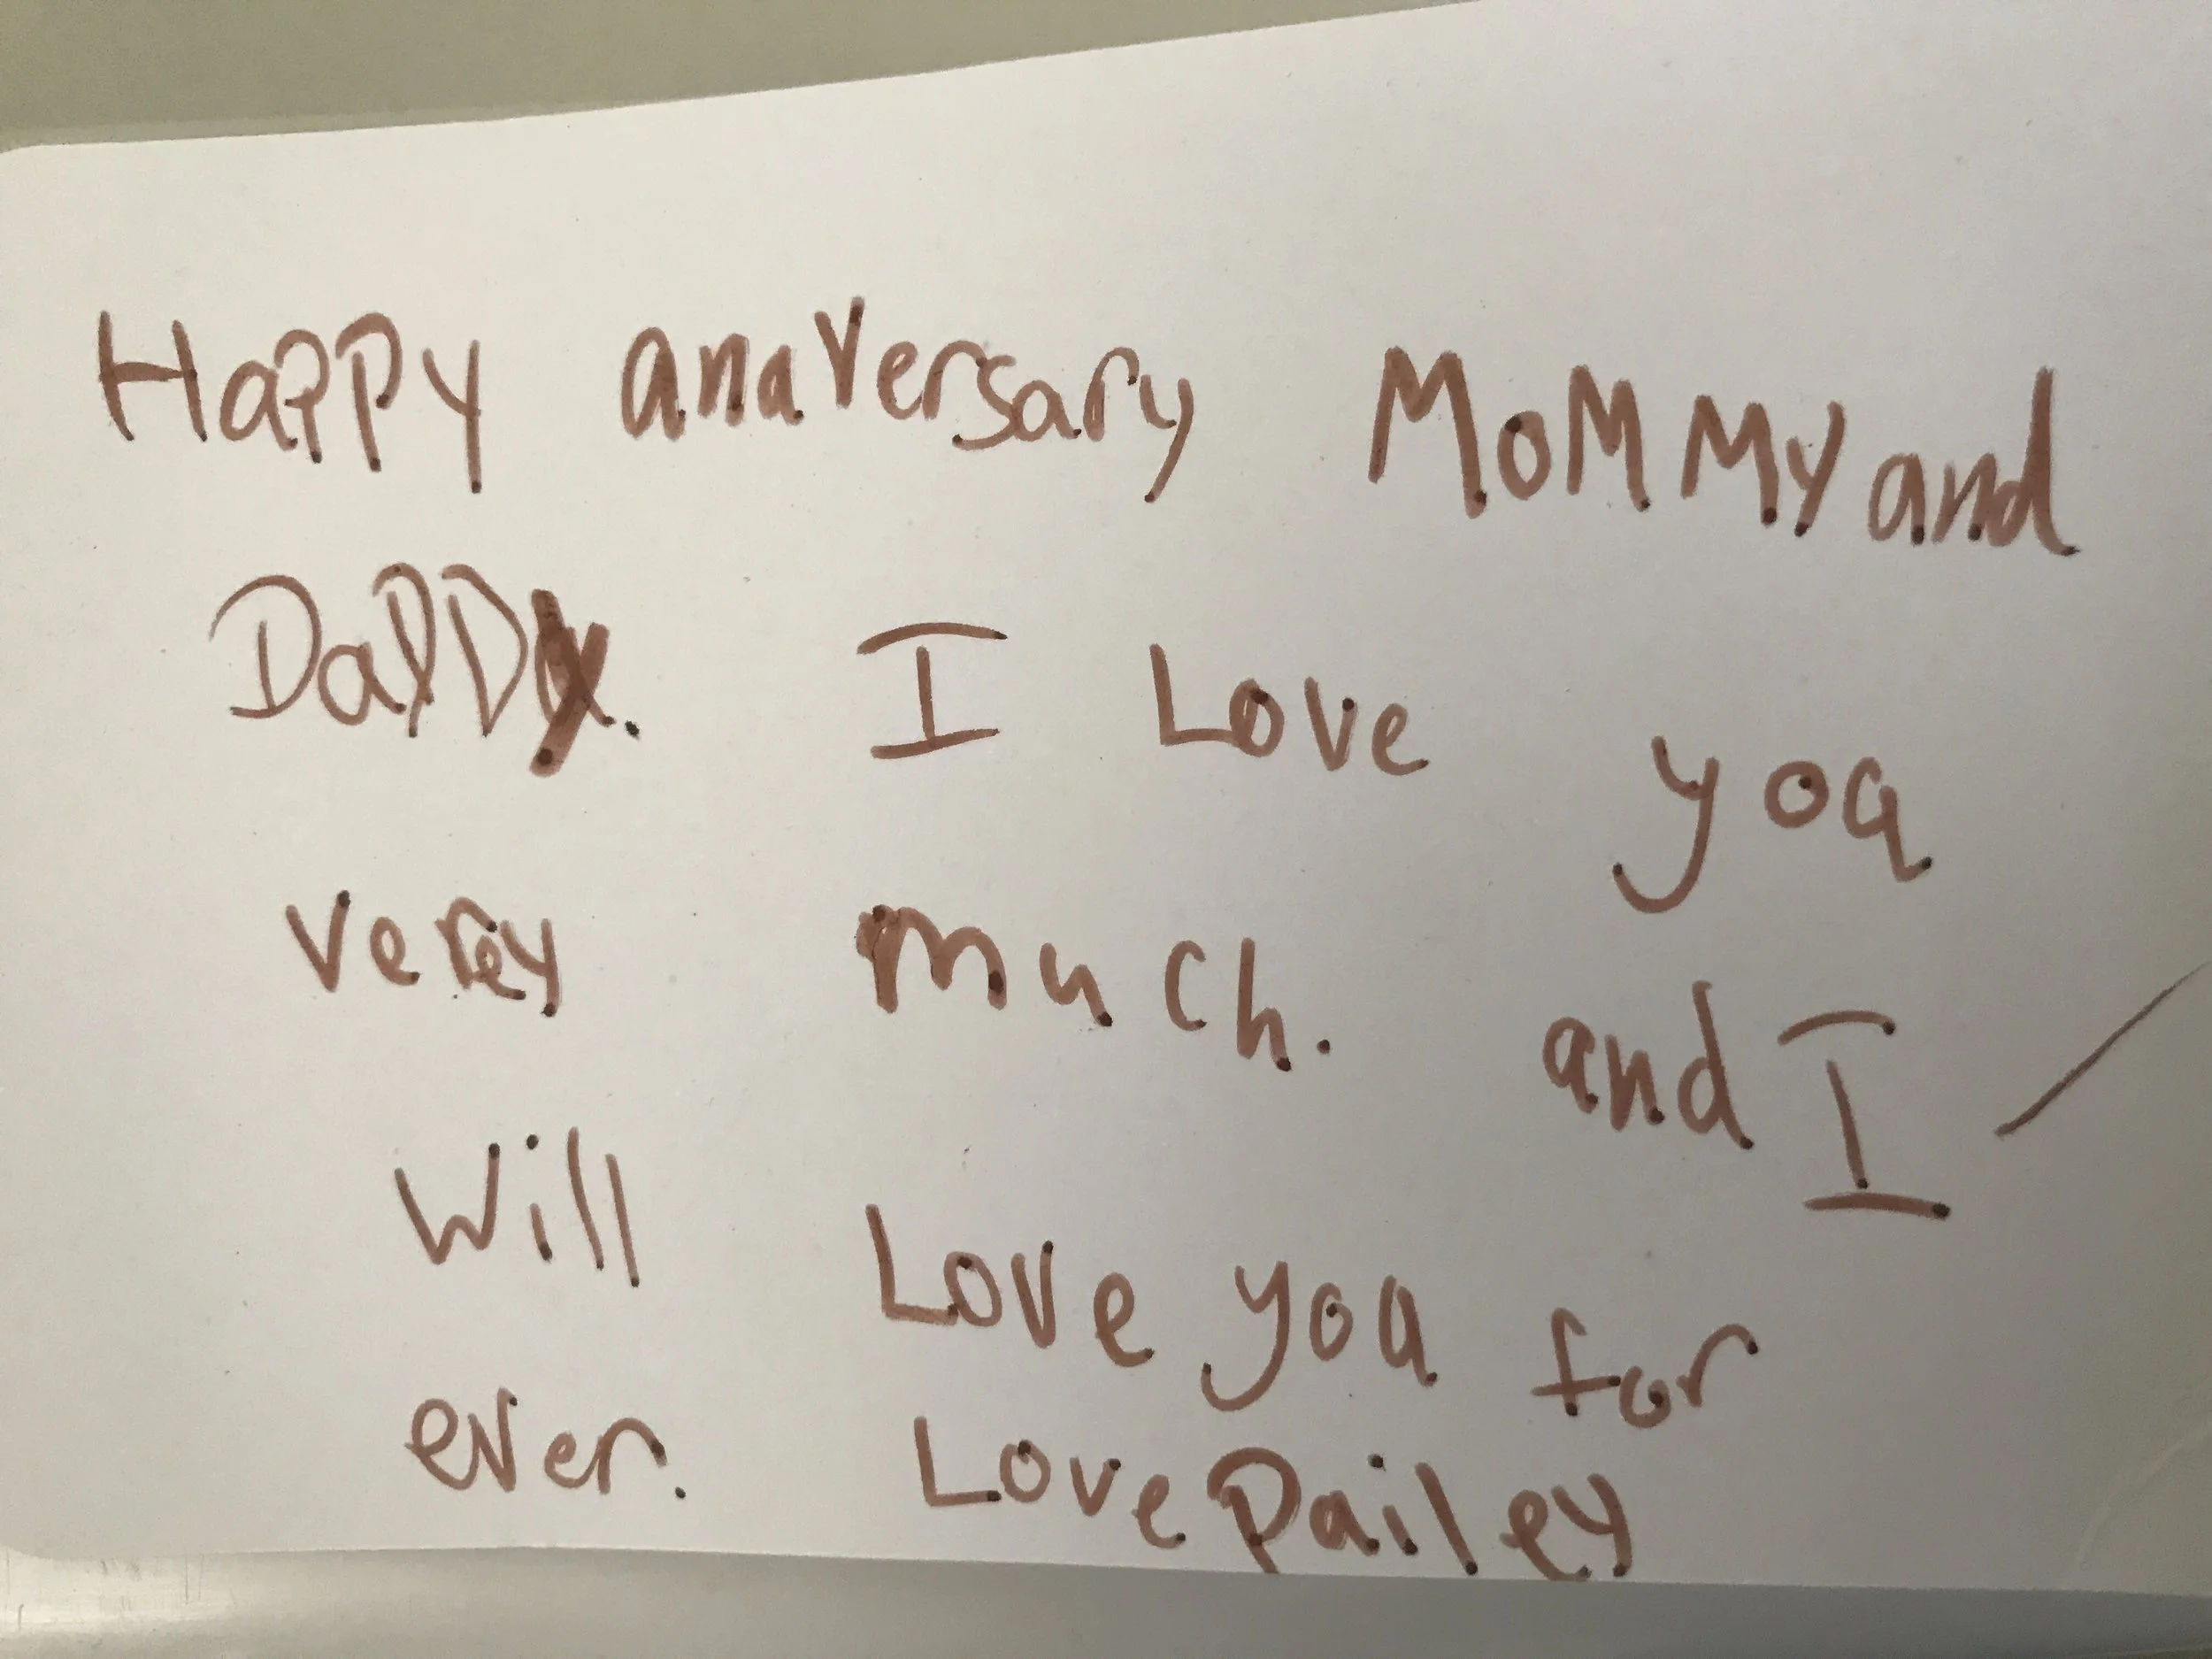 Happy anaversary Mommy and
Daddy. I Love you
very much. and I
will Love you for
ever. Love Pailey